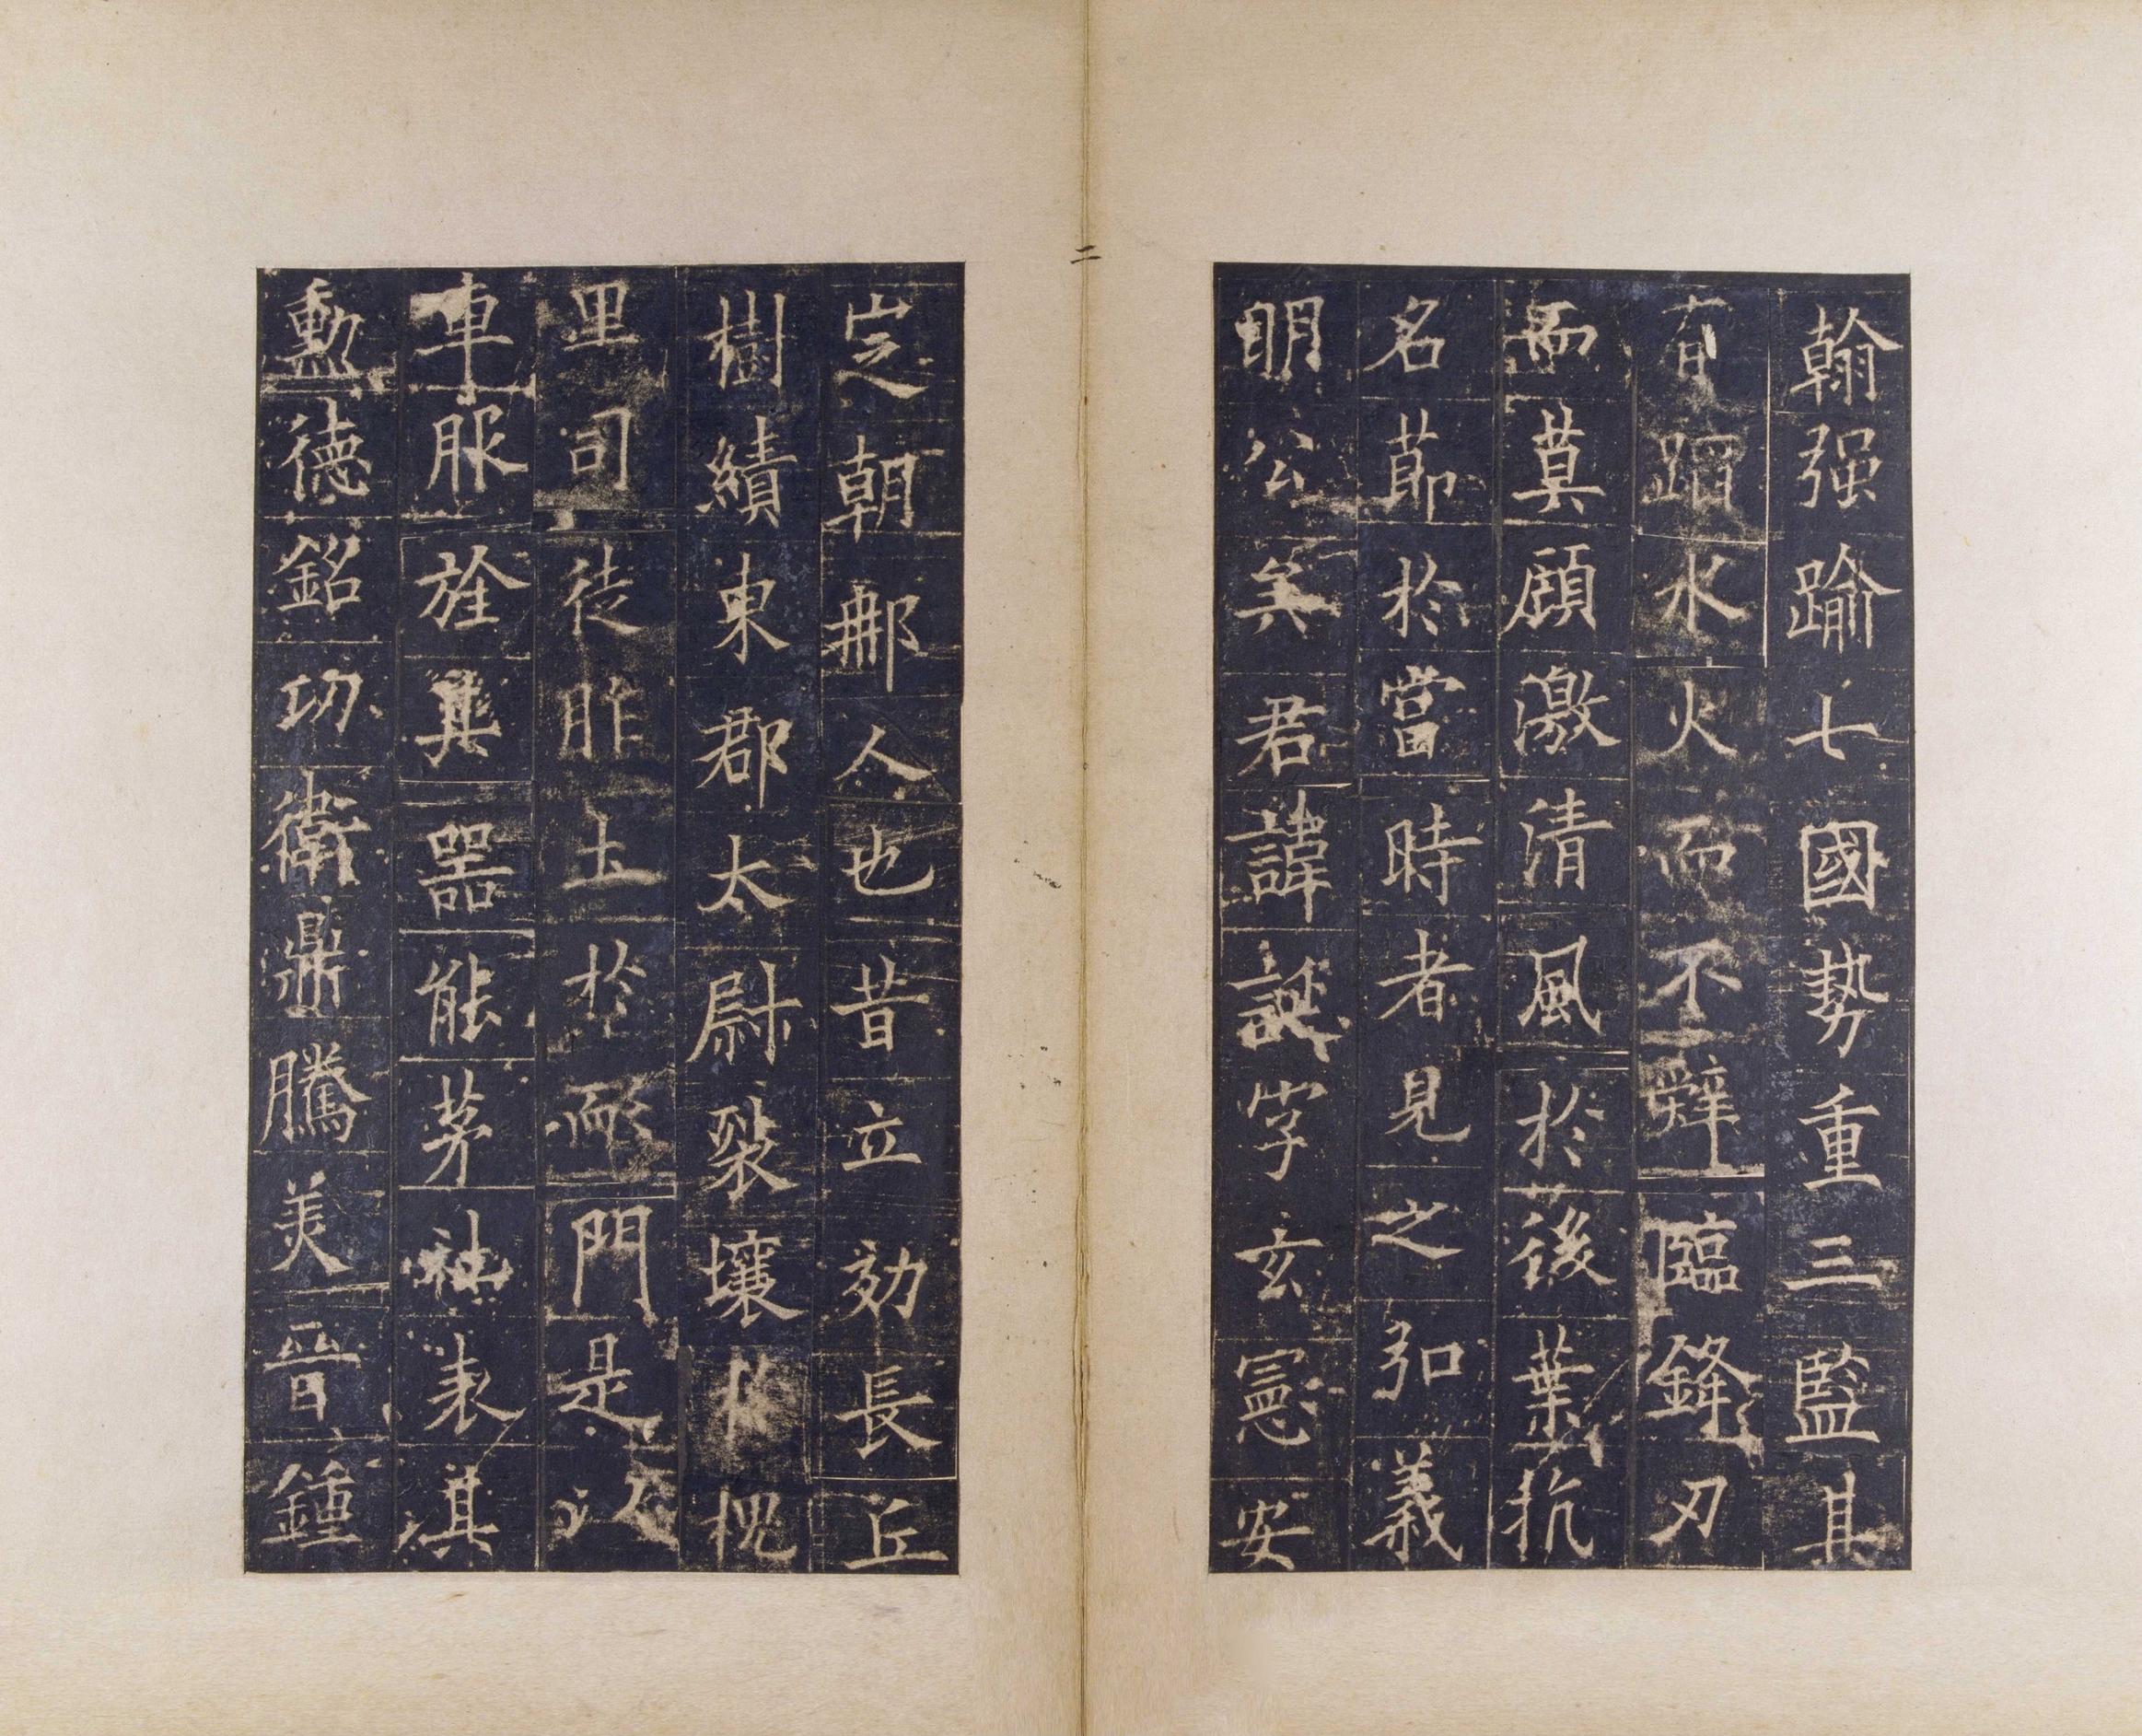 翰强踰七國勢重三監其
有蹈水火而不辭臨鋒刃
而莫顧激清風於後葉抗
名莭於當時者見之弘義
明公矣君諱誕字玄憲安
㝎朝䣕人也昔立効長丘
樹績東郡太尉裂壤於槐
里司徒胙土於耏門是以
車服旌其器能茅社表其
勳德銘功衛鼎騰美晉鍾
二